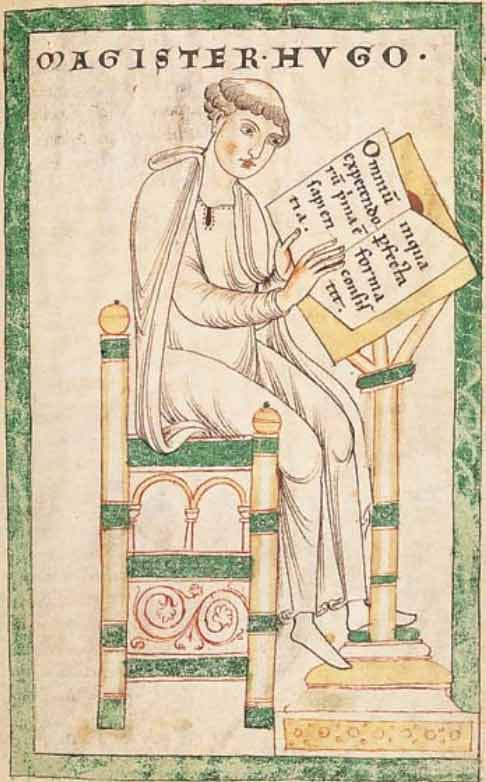 MAGISTER·HVGO·
Omniū
expetendo
rū pma ē
sapien
tia.
inqua
pfecta
forma
consis
tit.